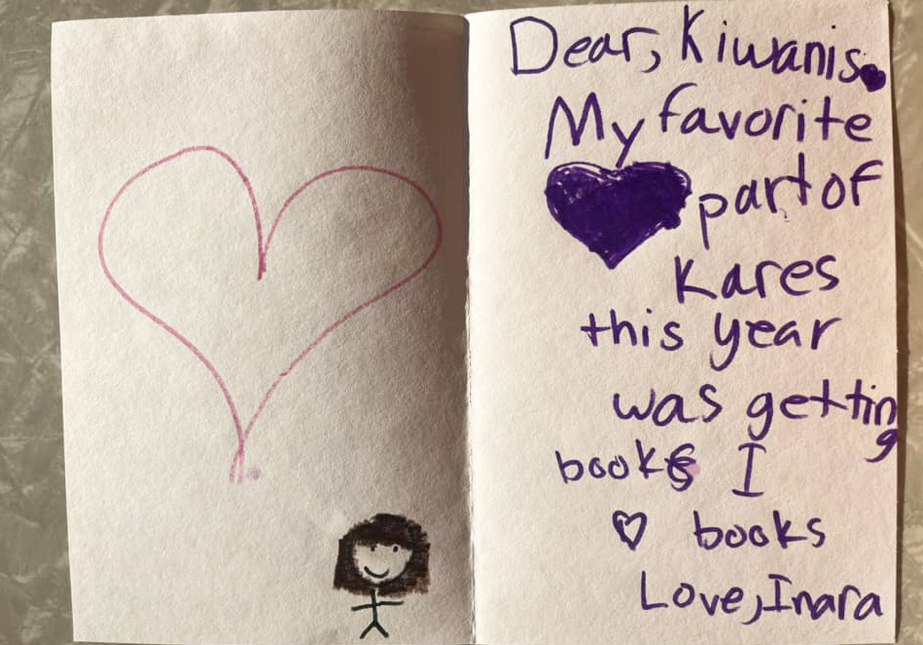 Dear, Kiwanis
My favorite
part of
Kares
this year
was getting
books I
♡ books
Love, Inara